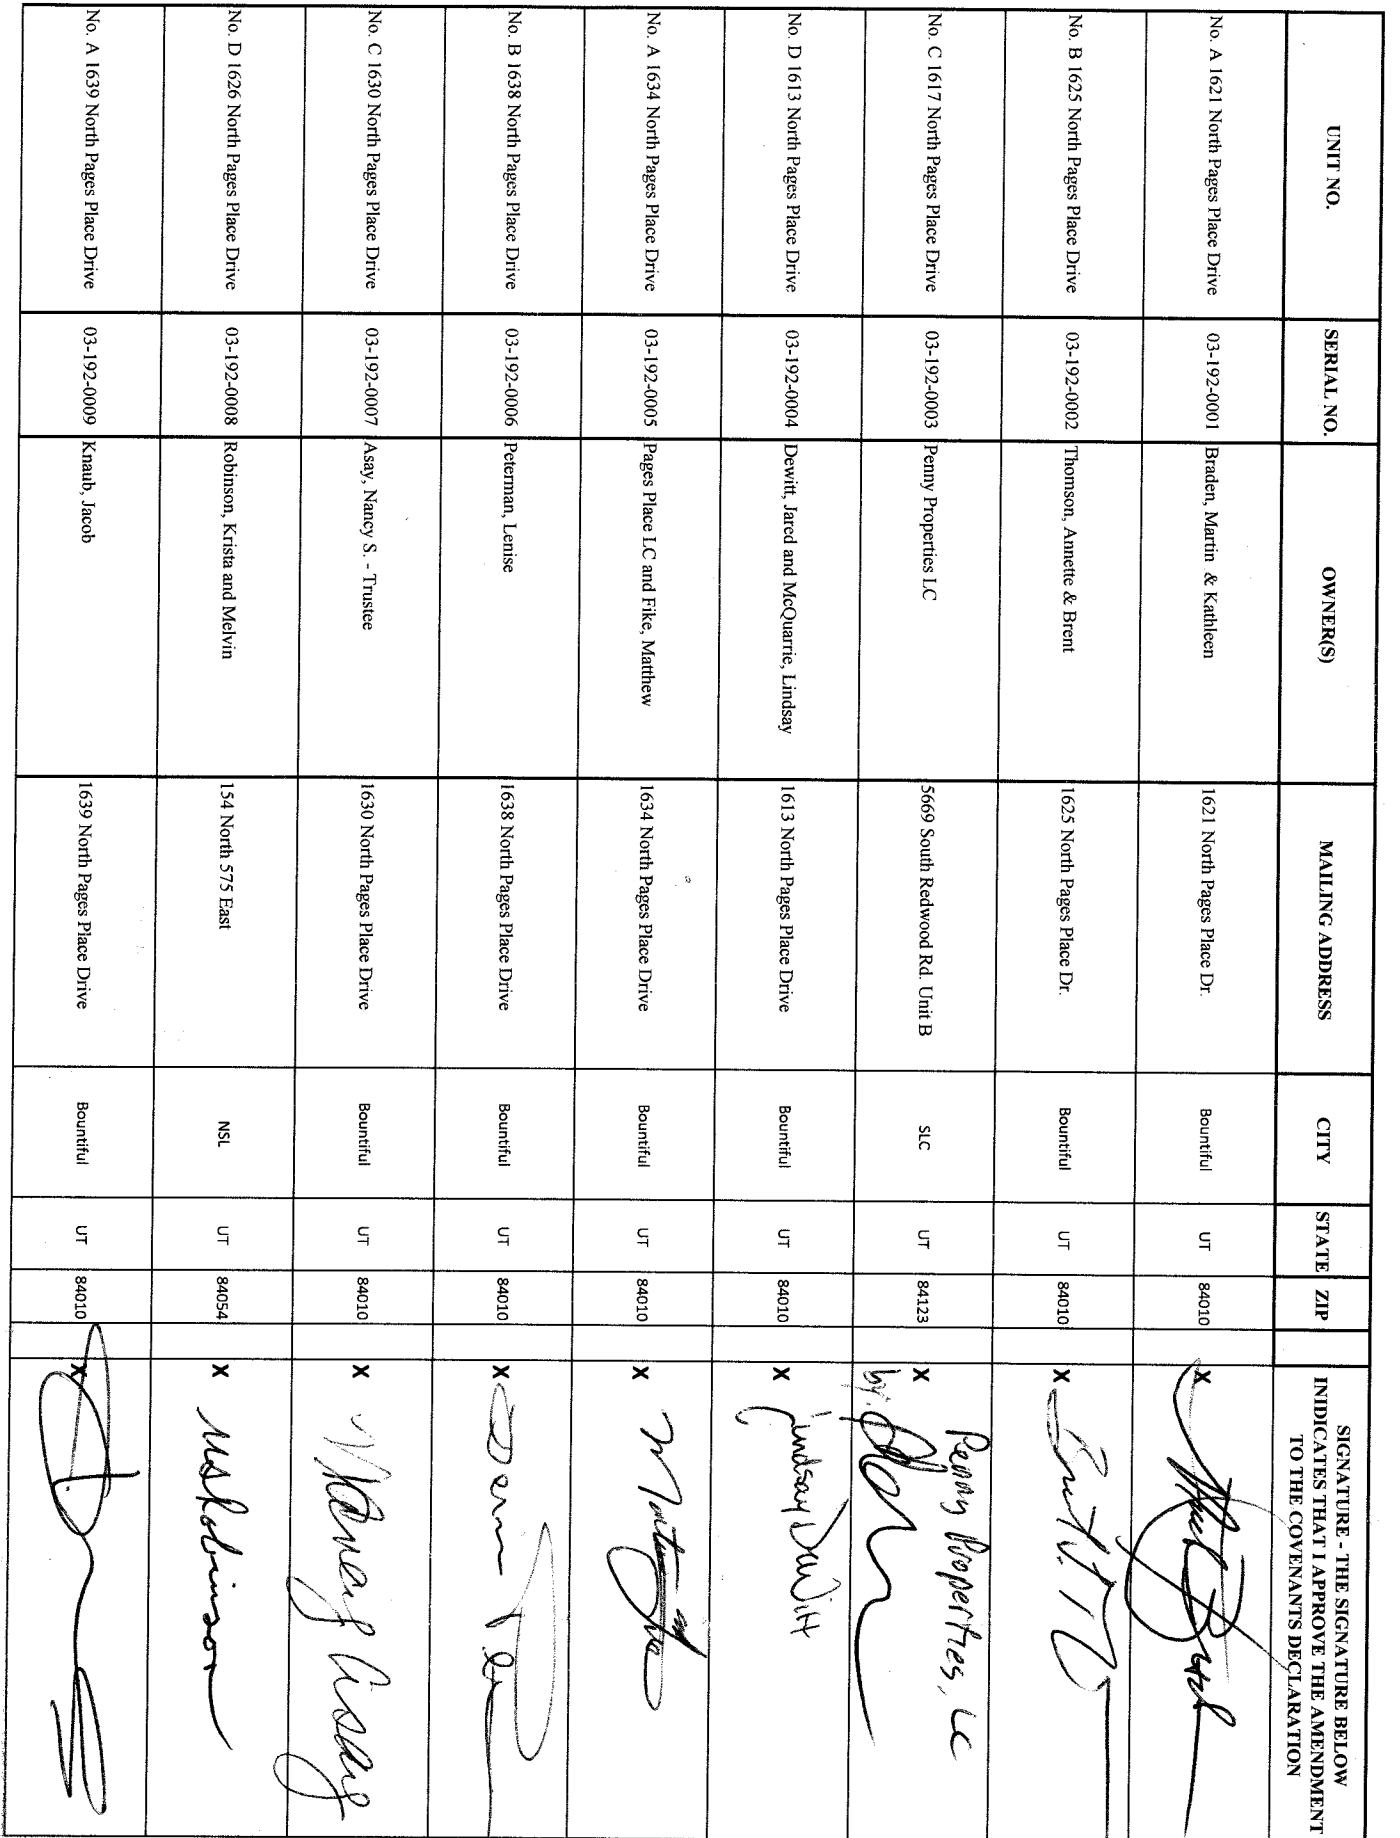 UNIT NO. SERIAL NO. OWNER(S) MAILING ADDRESS CITY STATE ZIP SIGNATURE - THE SIGNATURE BELOW
INIDICATES THAT I APPROVE THE AMENDMENT
TO THE COVENANTS DECLARATION
No. A 1621 North Pages Place Drive 03-192-0001 Braden, Martin & Kathleen 1621 North Pages Place Dr. Bountiful UT 84010 X
No. B 1625 North Pages Place Drive 03-192-0002 Thomson, Annette & Brent 1625 North Pages Place Dr. Bountiful UT 84010 X
No. C 1617 North Pages Place Drive 03-192-0003 Penny Properties LC 5669 South Redwood Rd. Unit B SLC UT 84123 X Penny Properties, LC
by:
No. D 1613 North Pages Place Drive 03-192-0004 Dewitt, Jared and McQuarrie, Lindsay 1613 North Pages Place Drive Bountiful UT 84010 X Lindsay DeWitt
No. A 1634 North Pages Place Drive 03-192-0005 Pages Place LC and Fike, Matthew 1634 North Pages Place Drive Bountiful UT 84010 X
No. B 1638 North Pages Place Drive 03-192-0006 Peterman, Lenise 1638 North Pages Place Drive Bountiful UT 84010 X
No. C 1630 North Pages Place Drive 03-192-0007 Asay, Nancy S. - Trustee 1630 North Pages Place Drive Bountiful UT 84010 X Nancy Asay
No. D 1626 North Pages Place Drive 03-192-0008 Robinson, Krista and Melvin 154 North 575 East NSL UT 84054 X MSRobinson
No. A 1639 North Pages Place Drive 03-192-0009 Knaub, Jacob 1639 North Pages Place Drive Bountiful UT 84010 X